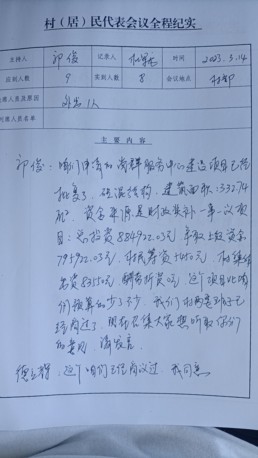 村（居）民代表会议全程纪实
主持人 邱俊 记录人 时间 2023.3.14
应到人数 9 实到人数 8 会议地点 村部
席人员及原因 外出1人
席人员名单
主要内容
邱俊：咱们申寄的党群服务中心建造项目已经
批复了，砖混结构，建筑面积：332.74
，资金来源是财政奖补一事一议项
目：总投资884922.03元，争取上级资金
794922.03元，村民筹资元，村集体
出资83550元，折资0元，这个项目比咱
们预算的少了不少，我们村两委班子已
经商过了，现在召集大家想听取你们
的意见，请发言。
德：这个咱们已经商议过，我同意。